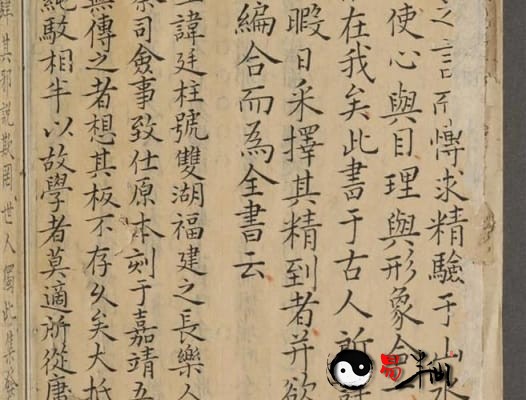 之言而博求精驗于山水
使心與目理與形象會
在我矣此書于古人所
暇日采擇其精到者并欲
編合而為全書云
諱廷柱號雙湖福建之長樂人
司僉事致仕原本刻于嘉靖五
無傳之者想其板不存久矣大抵
純駁相半以故學者莫適所從
其邪說欺罔世人獨此集
易